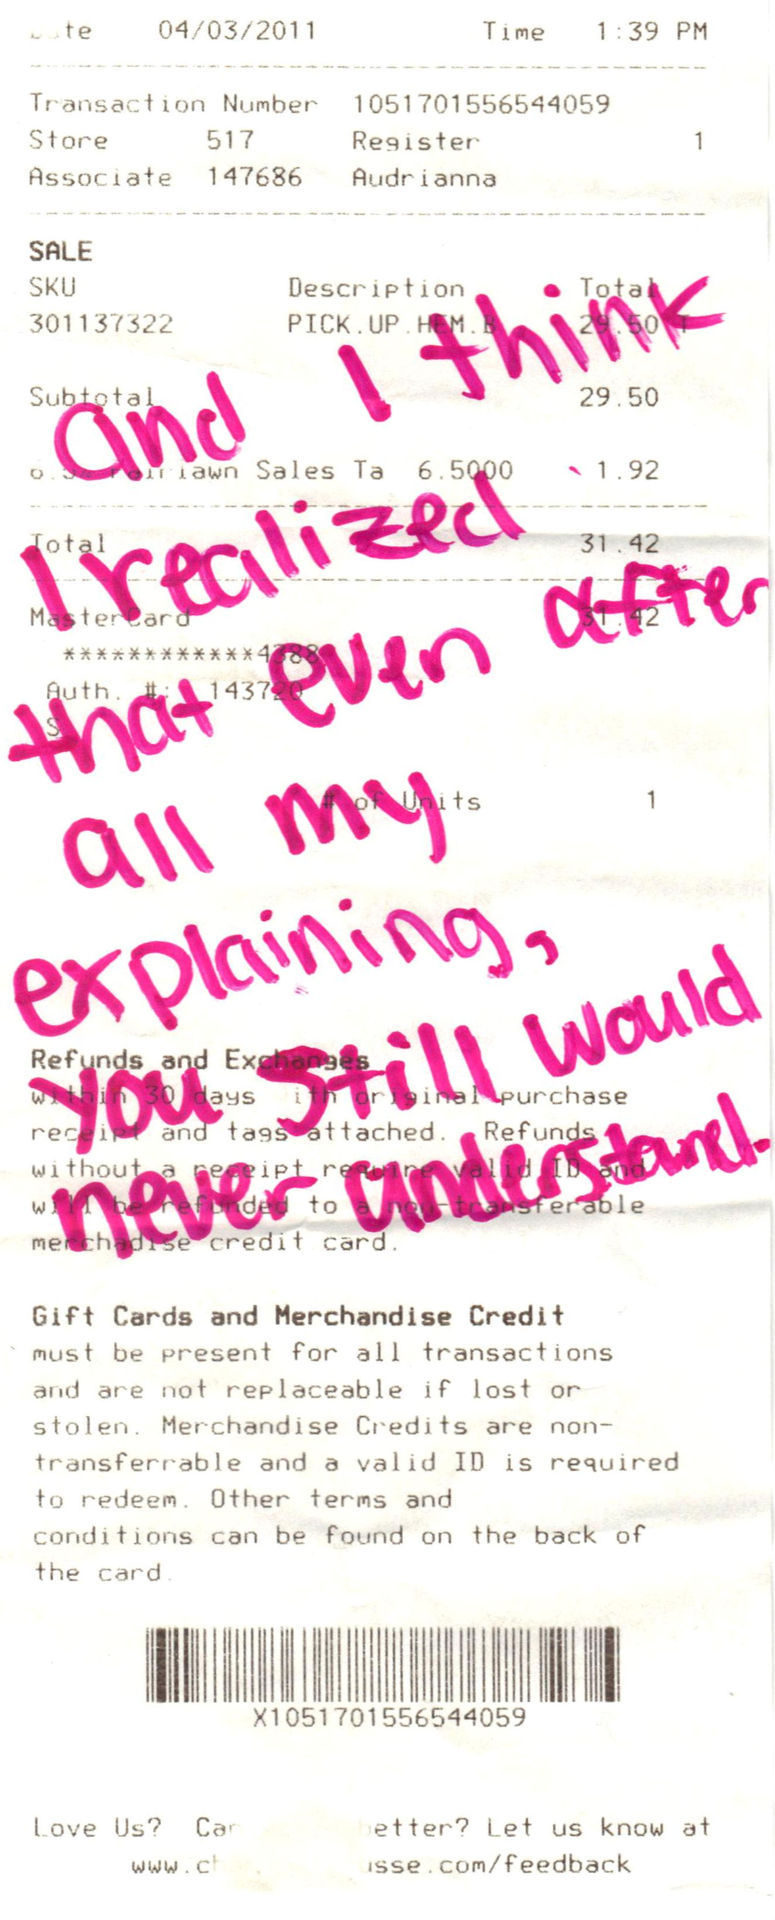 04/03/2011 Time 1:39 PM
Transaction Number 1051701556544059
Store 517 Register 1
Associate 147686 Audrianna
SALE
SKU Description Total
301137322 PICK.UP.HEM.B 29.50 T
Subtotal 29.50
Sales Ta 6.5000 1.92
Total 31.42
MasterCard 31.42
************4388
Auth. #: 143720
S
# of Units 1
Refunds and Exchanges
within 30 days ith original purchase
receipt and tags attached. Refunds
without a receipt require valid ID and
will be refunded to a non-transferable
merchadise credit card.
Gift Cards and Merchandise Credit
must be present for all transactions
and are not replaceable if lost or
stolen. Merchandise Credits are non-
transferrable and a valid ID is required
to redeem. Other terms and
conditions can be found on the back of
the card.
X1051701556544059
Love Us? etter? Let us know at
www.ch usse.com/feedback
and I think
I realized
that even after
all my
explaining,
you still would
never understand.